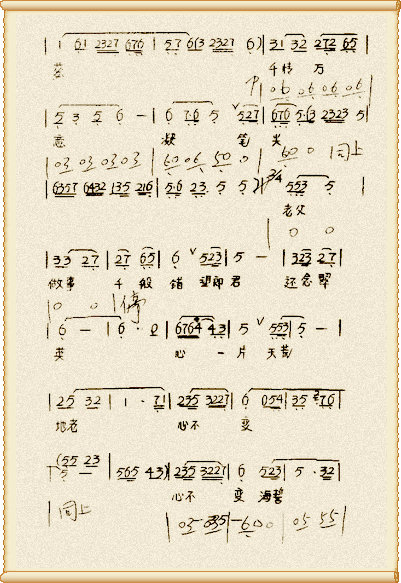 | 1 61 2327 676 | 5 67 6(3 2327 6) | 31 32 272 65 |
千情 万
| 06 06 06 06
| 5 3 5 6 - | 6 76 5 ∨527 | 676 5·(3 2323 5 |
意 凝 笔 尖
| 03 03 03 03 | 60 06 50 0 | 60 0 | 同上
| 6357 6432 135 216 | 5·6 23 5 5 ) | 3/4 553 5 |
老父
| 0 0
| 33 27 | 27 65 | 6 ∨523 | 5 - | 323 27 |
做事 千 般 错 望郎 君 还念 翠
| 0 0 | 停
| 6 - | 6 · 0 | 6764 43 | 5 ∨553 | 5 - |
英 心 一 片 天荒
| 25 32 | 1 · 71 | 235 3227 | 6 054 | 35 276 |
地老 心不 变
| (55 23
5 - | 565 43) | 235 3227 | 6 523 | 5 · 32 |
心不 变 海碧
| 同上 | 03 035 | 60 0 | 05 55 |